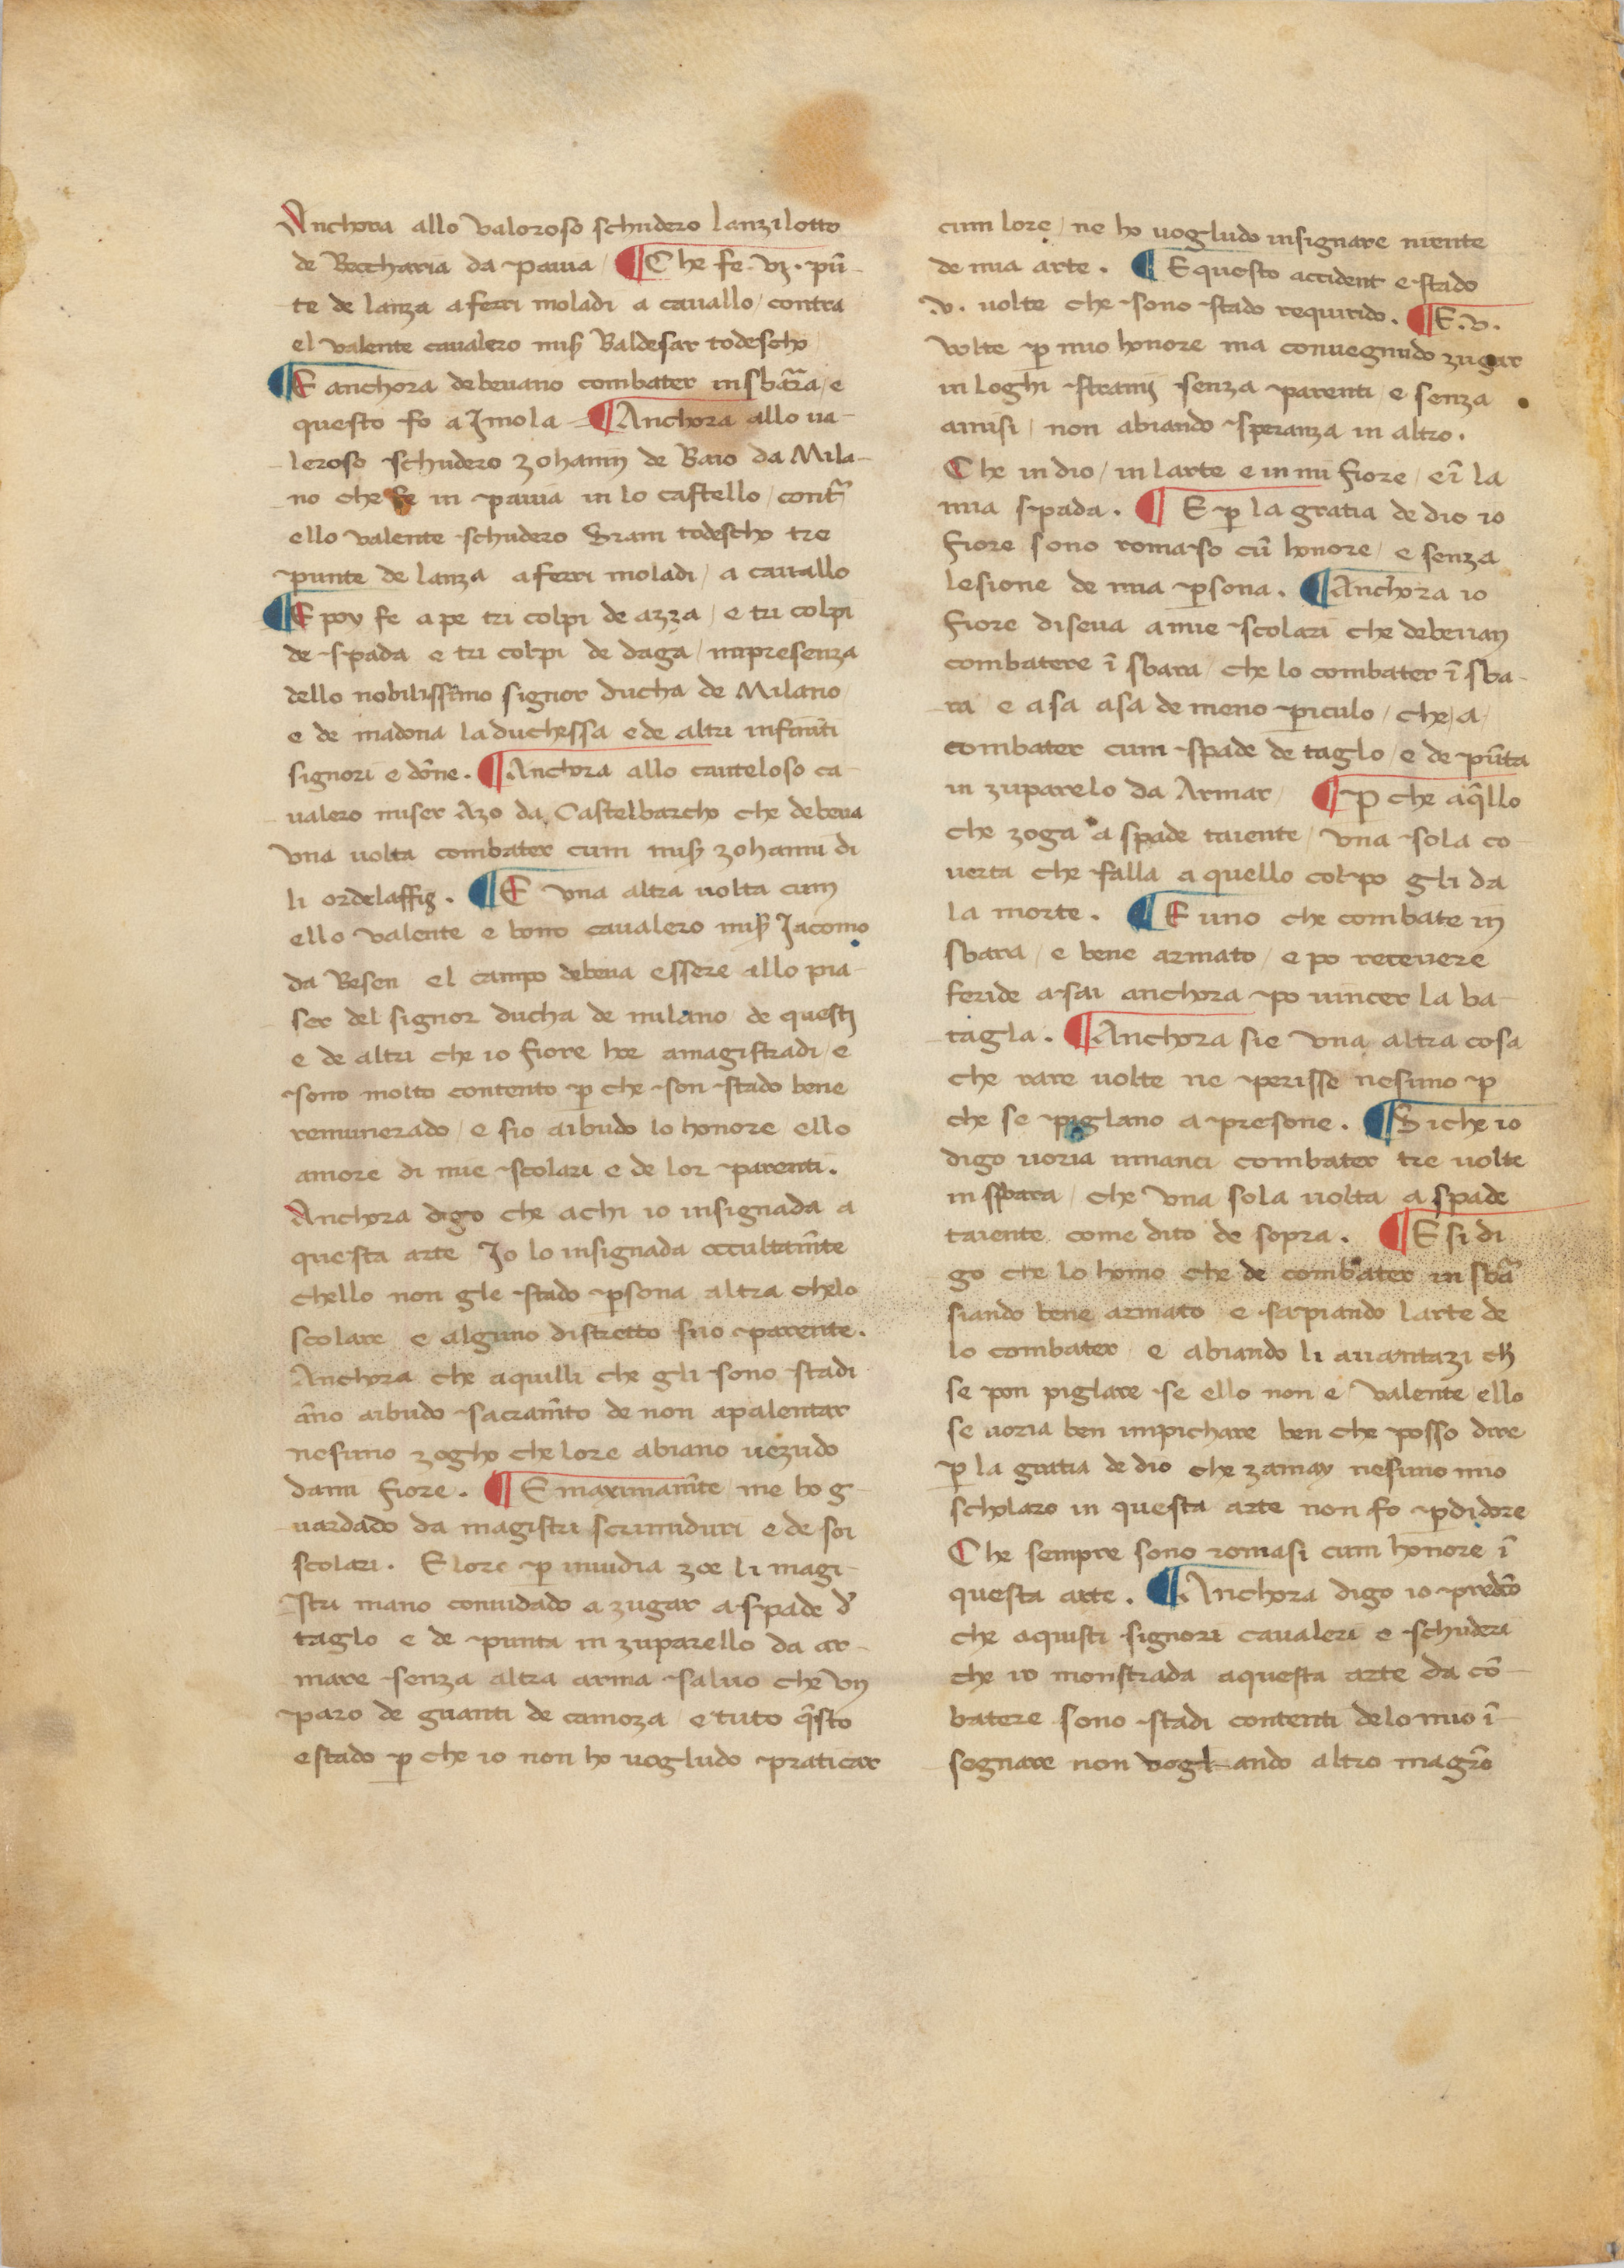 Anchora allo valoroso schudero lanzilotto
de Beccharia da pauia / ¶ Che fe .vj. pū-
te de lanza a ferri moladi a cauallo / contra
el valente caualero misẜ Baldesar todescho /
¶ E anchora debeuano combater in sbar̄a / e
questo fo a Jmola – ¶ Anchora allo ua-
leroso schudero zohanni de Baio da Mila-
no che fe in pauia in lo castello / cont̄ra
ello valente schudero Sram todescho tre
punte de lanza a ferri moladi / a cauallo
¶ E poy fe a pe tri colpi de azza / e tri colpi
de spada e tri colpi de daga / in presenza
dello nobilissimo signor ducha de Milano /
e de madona la duchessa e de altri infiniti
signori e dōne . ¶ Anchora allo cauteloso ca-
ualero miser Azo da Castelbarcho che debeua
vna uolta combater cum misẜ zohanni di
li ordelaffij . ¶ E vna altra uolta cum
ello valente e bono caualero misẜ Jacomo
da Besen el campo debeua essere allo pia-
ser del signor ducha de milano / de questi
e de altri che io fiore hoe amagistradi / e
sono molto contento ꝑ che son stado bene
remunerado / e sio aibudo lo honore ello
amore di mie scolari e de lor parenti .
Anchora digo che achi io insignada a
questa arte Jo lo insignada occultam̄te
chello non gle stado ꝑsona altra chelo
scolare e alguno distretto suo parente .
Anchora che aquilli che gli sono stadi
āno aibudo sacram̄to de non apalentar
nesuno zogho che lore abiano uezudo
dami fiore . ¶ E maximam̄te me ho g-
uardado da magistri scrimiduri e de soi
scolari . E lore ꝑ inuidia zoe li magi-
stri mano conuidado a zugar a spade d̄
taglo e de punta in zuparello da ar-
mare senza altra arma saluo che vn
paro de guanti de camoza / e tuto q̄sto
e stado ꝑ che io non ho uogludo praticar
cum lore / ne ho uogludo insignare niente
de mia arte . ¶ E questo accident e stado
.v. uolte che sono stado requirido . ¶ E .v.
volte ꝑ mio honore ma conuegnudo zugar
in loghi stranij senza parenti e senza
amisi / non abiando speranza in altro .
Che in dio / in larte e in mi fiore / e ī la
mia spada . ¶ E ꝑ la gratia de dio io
fiore sono romaso cū honore / e senza
lesione de mia ꝑsona . ¶ Anchora io
fiore diseua a mie scolari che debeuan
combatere ī sbara / che lo combater ī sba-
ra e asa asa de meno ꝑiculo / che / a /
combater cum spade de taglo / e de pūta
in zuparelo da Armar / ¶ ꝑ che aq̄llo
che zoga a spade taiente / vna sola co-
uerta che falla a quello colpo gli da
la morte . ¶ E uno che combate in
sbara / e bene armato / e po receuere
feride asai anchora po uincer la ba-
tagla . ¶ Anchora sie vna altra cosa
che rare uolte ne perisse nesuno ꝑ
che se piglano a presone . ¶ Si che io
digo uoria inanci combater tre uolte
in sbara / che vna sola uolta a spade
taiente come dito de sopra . ¶ E si di
go che lo homo che de combater in sbā
siando bene armato e sapiando larte de
lo combater / e abiando li auantazi ch̄
se pon piglare se ello non e valente ello
se uoria ben impichare ben che posso dire
ꝑ la gratia de dio che zamay nesuno mio
scholaro in questa arte non fo ꝑdidore
Che sempre sono romasi cum honore ī
questa arte . ¶ Anchora digo io predc̄o
che aquisti signori caualeri e schuderi
che io monstrada aquesta arte da cō-
batere sono stadi contenti delo mio ī-
segnare non vogl-ando altro magr̄o